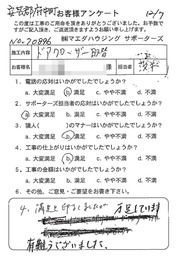 安芸郡府中町 お客様アンケート 12/7
この度は工事のご用命を賜りありがとうございました。お手数で
すがご記入頂き、ご返送頂きますようお願い申し上げます。
No.70896 ㈱マエダハウジング サポーターズ
施工内容 ドアクローザー取替
お名前 様 担当者
1. 電話の応対はいかがでしたでしょうか?
a. 大変満足 b. 満足 c. やや不満 d. 不満
2. サポーターズ担当者の応対はいかがでしたでしょうか?
a. 大変満足 b. 満足 c. やや不満 d. 不満
3. 職人( )のマナーはいかがでしたでしょうか?
a. 大変満足 b. 満足 c. やや不満 d. 不満
4. 工事の仕上がりはいかがでしたでしょうか?
a. 大変満足 b. 満足 c. やや不満 d. 不満
5. 工事金額はいかがでしたでしょうか?
a. 大変満足 b. 満足 c. やや不満 d. 不満
6. その他、ご意見・ご要望をお書き下さい。
4. 満足と
有難うございました。